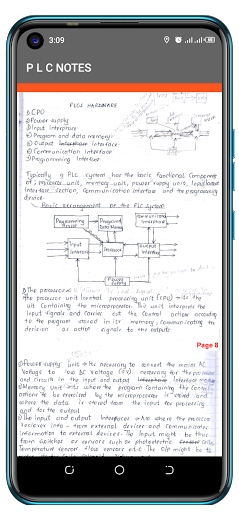 3:09
P L C NOTES
PLCs HARDWARE
1) CPU
2) Power supply
3) Input Interface
4) Program and data memory
5) Output Interface
6) Communication Interface
7) Programming Interface
Typically a PLC system has the basic functional component
of; processor unit, memory unit, power supply unit, Input/output
Interface section, communication interface and the programming
device.
Basic arrangement of the PLC system
Programming Device
Program & Data Memory
Communications Interface
Input Interface
Processor
Output Interface
Power supply
1) The processor
the processor unit (central processing unit (CPU) → its the
unit containing the microprocessor. This unit interprets the
input signals and carries out the control action according
to the program stored in its memory, communicating the
decision as action signals to the outputs.
Page 8
2) Power supply unit → Its necessary to convert the mains AC
voltage to low DC voltage (5V) necessary for the processor
and circuits in the input and output Interface
3) Memory unit → its where the program containing the control
actions to be exercised by the microprocessor is stored and
where the data is stored from the input for processing
and for the output
4) The input and output Interfaces → Are where the processor
receives info from external devices and communicates
information to external devices. The Input might be thus
from switches or sensors such as photoelectric
Temperature sensor flow sensors etc. The O/p might be to